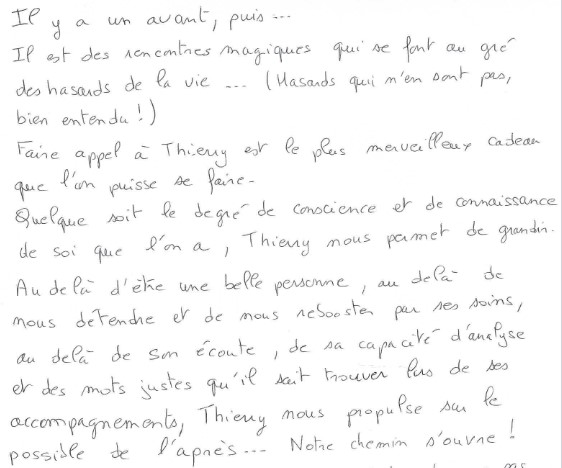 Il y a un avant, puis...
Il est des rencontres magiques qui se font au gré
des hasards de la vie ... (Hasards qui n'en sont pas,
bien entendu !)
Faire appel à Thierry est le plus merveilleux cadeau
que l'on puisse se faire.
Quelque soit le degré de conscience et de connaissance
de soi que l'on a, Thierry nous permet de grandir.
Au delà d'être une belle personne, au delà de
nous détendre et de nous rebooster par ses soins,
au delà de son écoute, de sa capacité d'analyse
et des mots justes qu'il sait trouver lus de ses
accompagnements, Thierry nous propulse sur le
possible de l'après... Notre chemin s'ouvre !